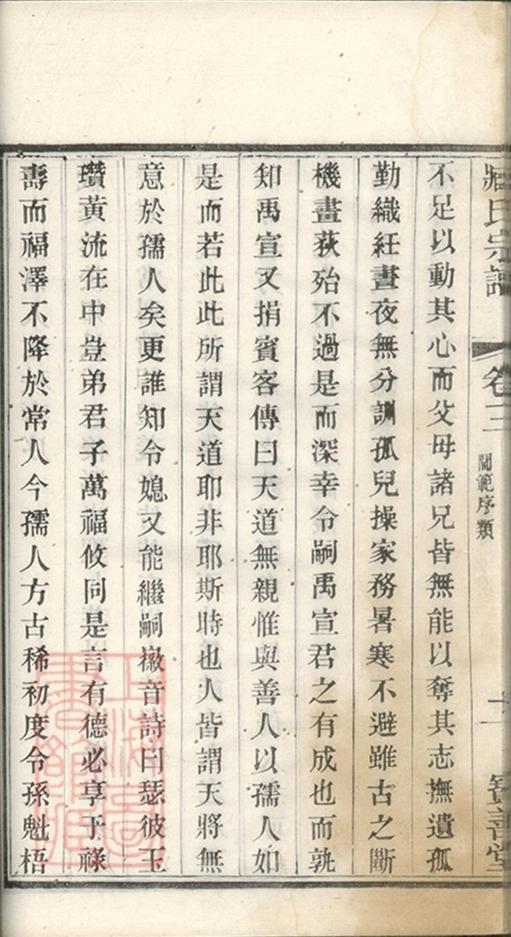 臧氏宗譜 卷三 閫範序類 十一 寶善堂
不足以動其心而父母諸兄皆無能以奪其志撫遺孤
勤織紝晝夜無分訓孤兒操家務暑寒不避雖古之斷
機畫荻殆不過是而深幸令嗣禹宣君之有成也而孰
知禹宣又捐賓客傳曰天道無親惟與善人以孺人如
是而若此此所謂天道耶非耶斯時也人皆謂天將無
意於孺人矣更誰知令媳又能繼嗣徽音詩曰瑟彼玉
瓚黃流在中豈弟君子萬福攸同是言有德必享于祿
壽而福澤不降於常人今孺人方古稀初度令孫魁梧
上海圖書館藏